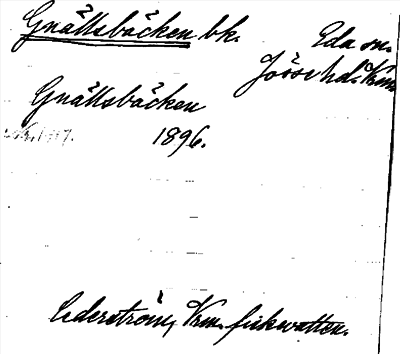 Gnällsbäcken bk.
Eda sn.
Jösse hd. Vrm
Gnällsbäcken
1896.
Cederström, Vrm. fiskvatten.